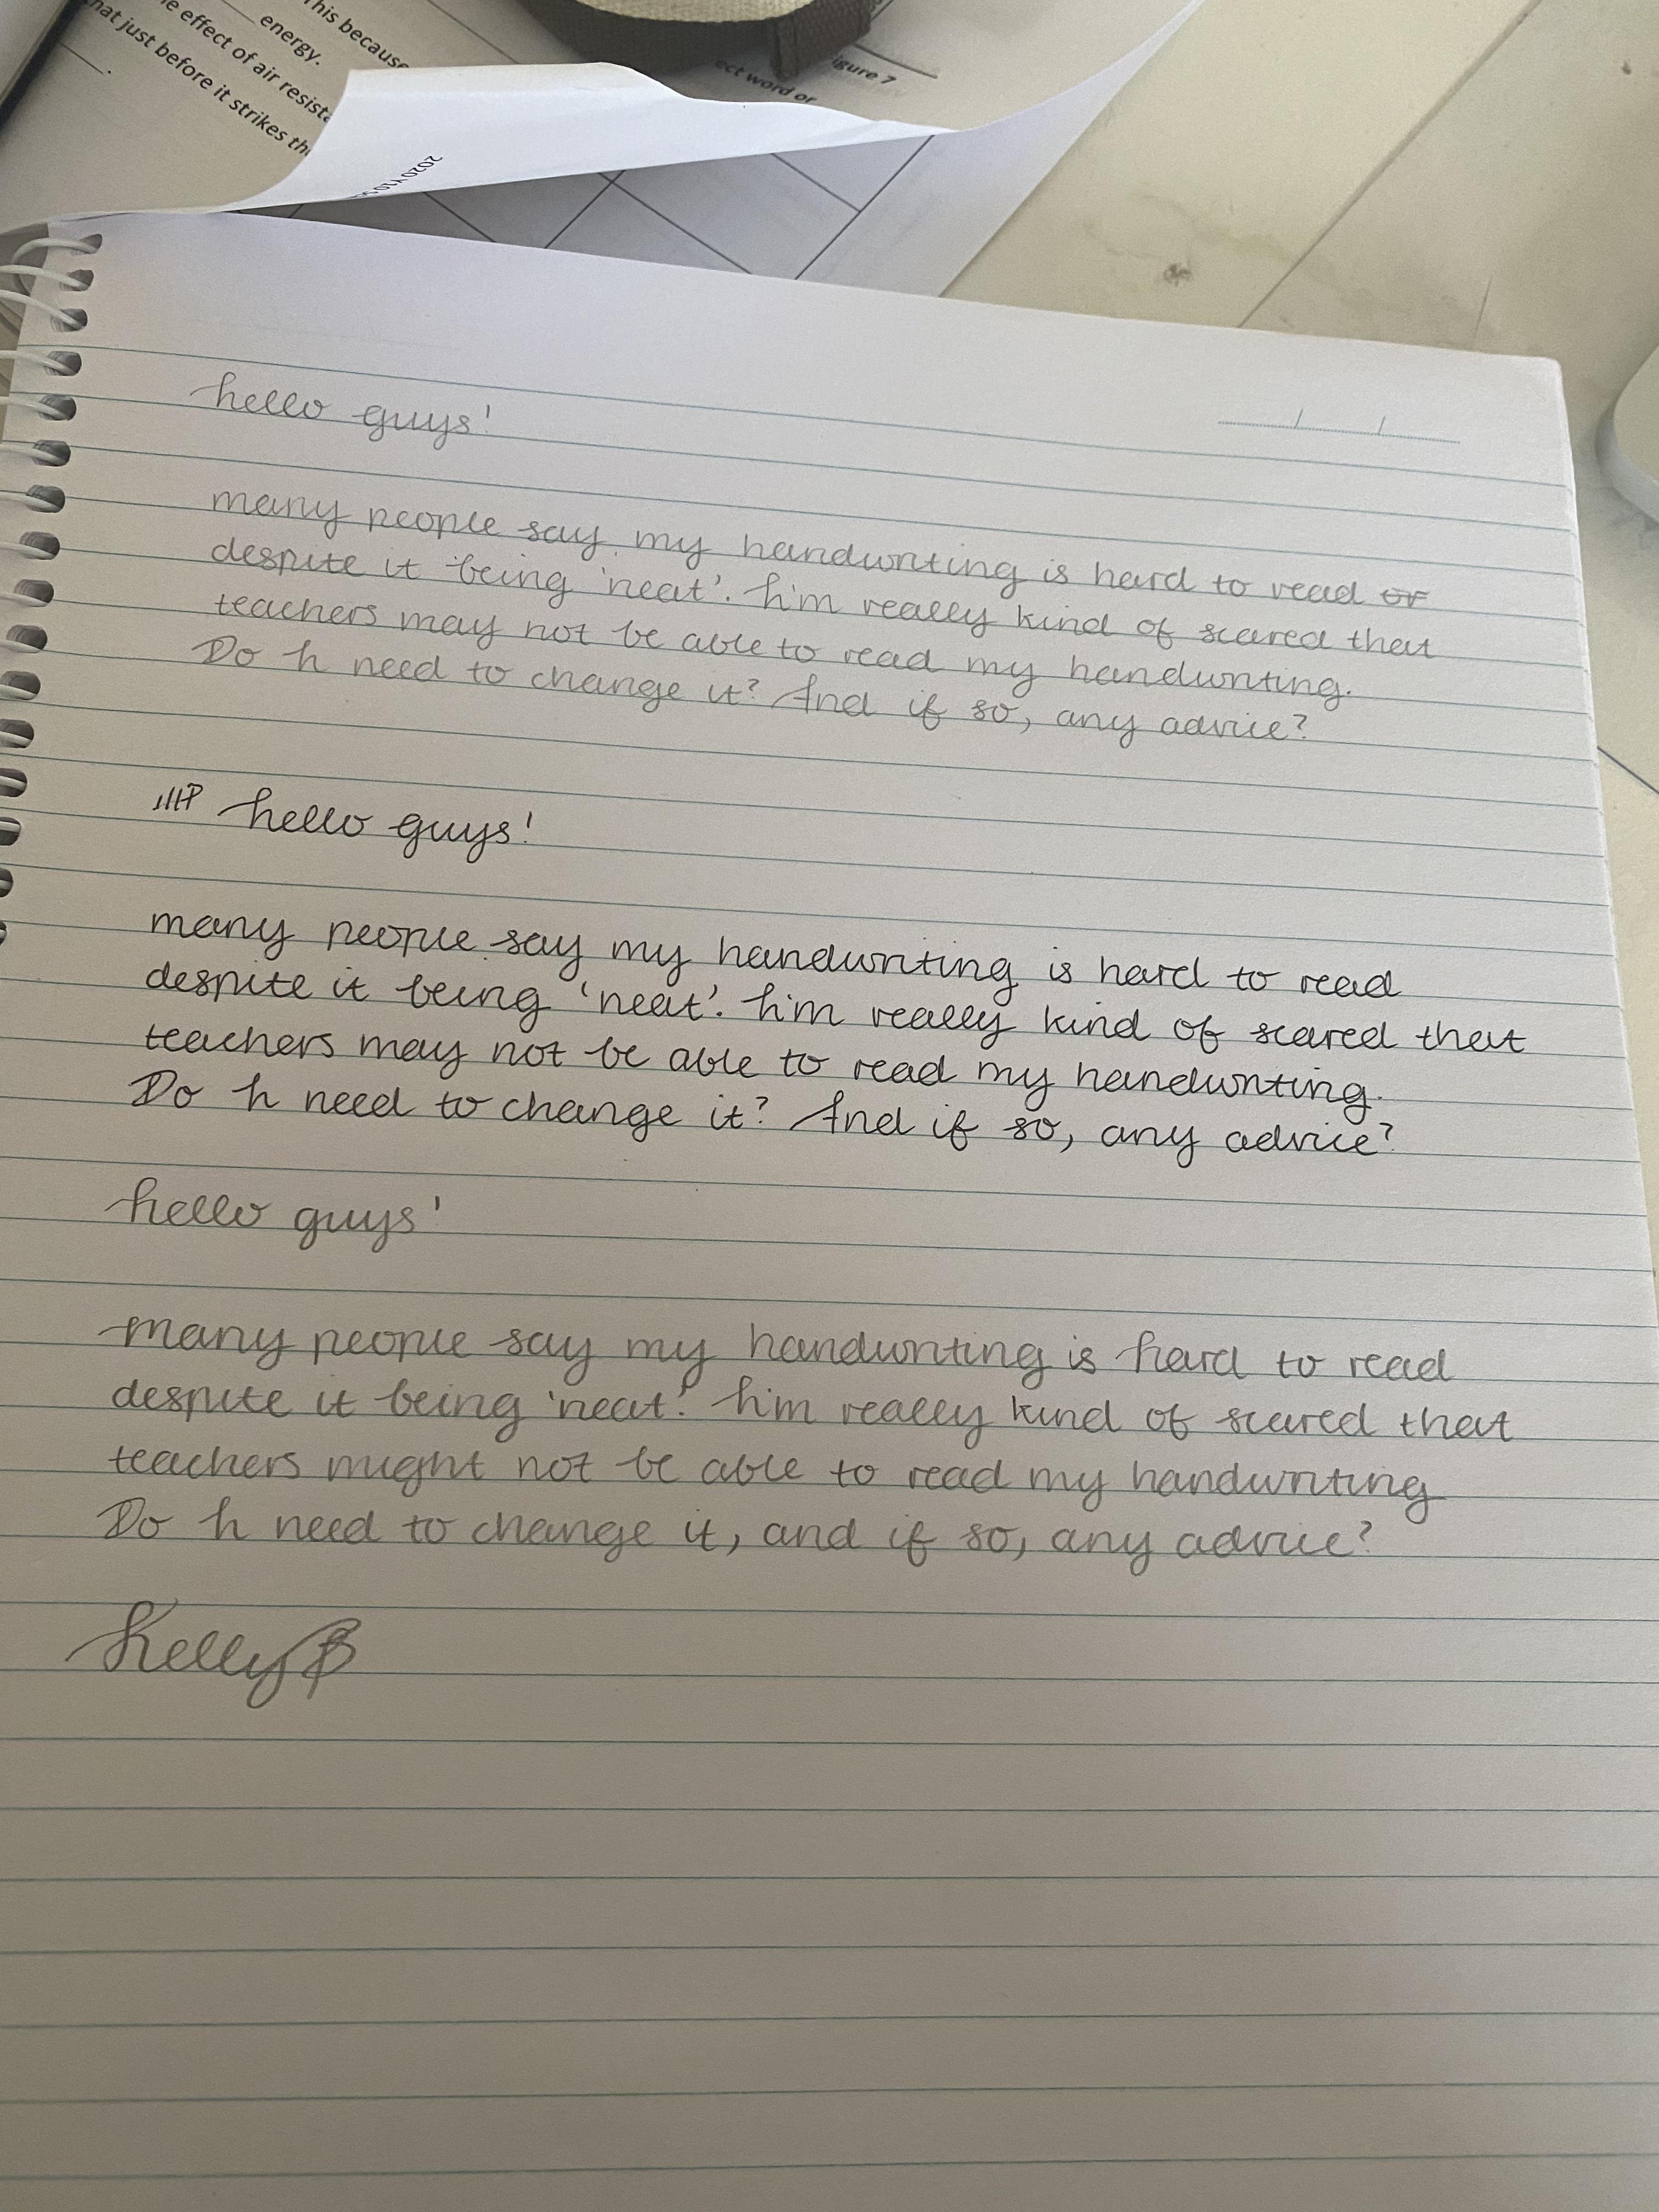 This because
energy.
effect of air resist
just before it strikes the
igure 7
ect word or
2020 Y10
hello guys!
many people say my handwriting is hard to read or
despite it being 'neat'. I'm really kind of scared that
teachers may not be able to read my handwriting.
Do I need to change it? And if so, any advice?
hello guys!
many people say my handwriting is hard to read
despite it being 'neat'. I'm really kind of scared that
teachers may not be able to read my handwriting.
Do I need to change it? And if so, any advice?
hello guys!
many people say my handwriting is hard to read
despite it being 'neat'. I'm really kind of scared that
teachers might not be able to read my handwriting
Do I need to change it, and if so, any advice?
Kelly B